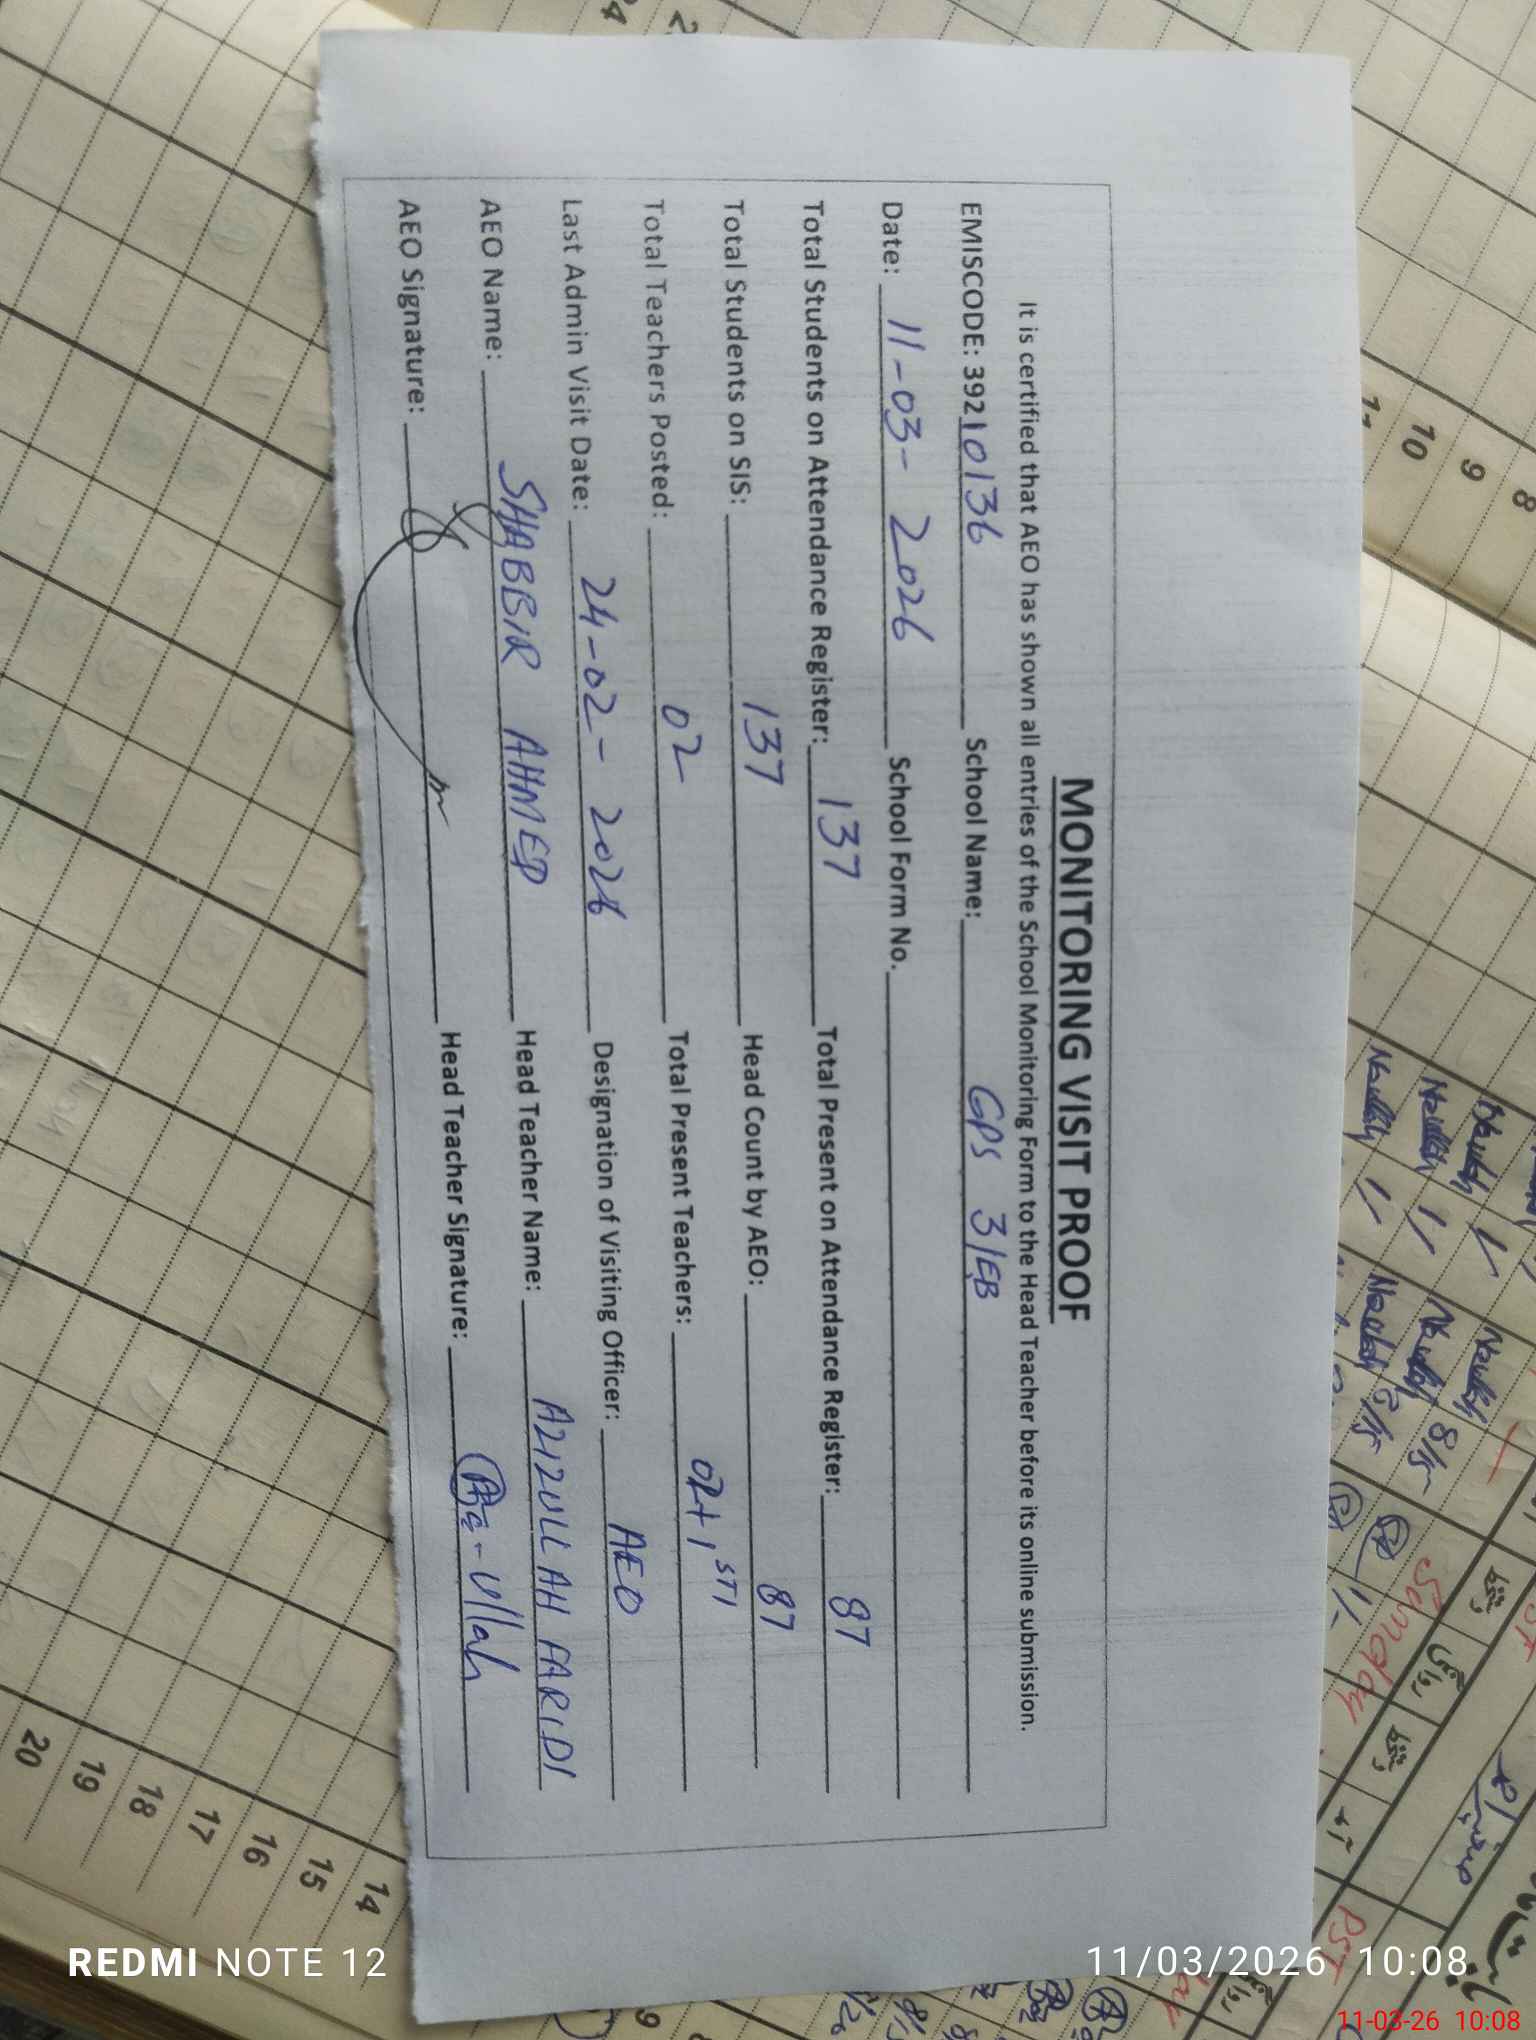 MONITORING VISIT PROOF
It is certified that AEO has shown all entries of the School Monitoring Form to the Head Teacher before its online submission.
EMISCODE: 39210136 School Name: GPS 3/EB
Date: 11-03-2026 School Form No.
Total Students on Attendance Register: 137 Total Present on Attendance Register: 87
Total Students on SIS: 137 Head Count by AEO: 87
Total Teachers Posted: 02 Total Present Teachers: 02+1 STI
Last Admin Visit Date: 24-02-2026 Designation of Visiting Officer: AEO
AEO Name: SHABBIR AHMED Head Teacher Name: AZIZULLAH FARIDI
AEO Signature: Head Teacher Signature:
8
9
10
Sunday
PST
14
15
16
17
18
19
20
REDMI NOTE 12
11/03/2026 10:08
11-03-26 10:08